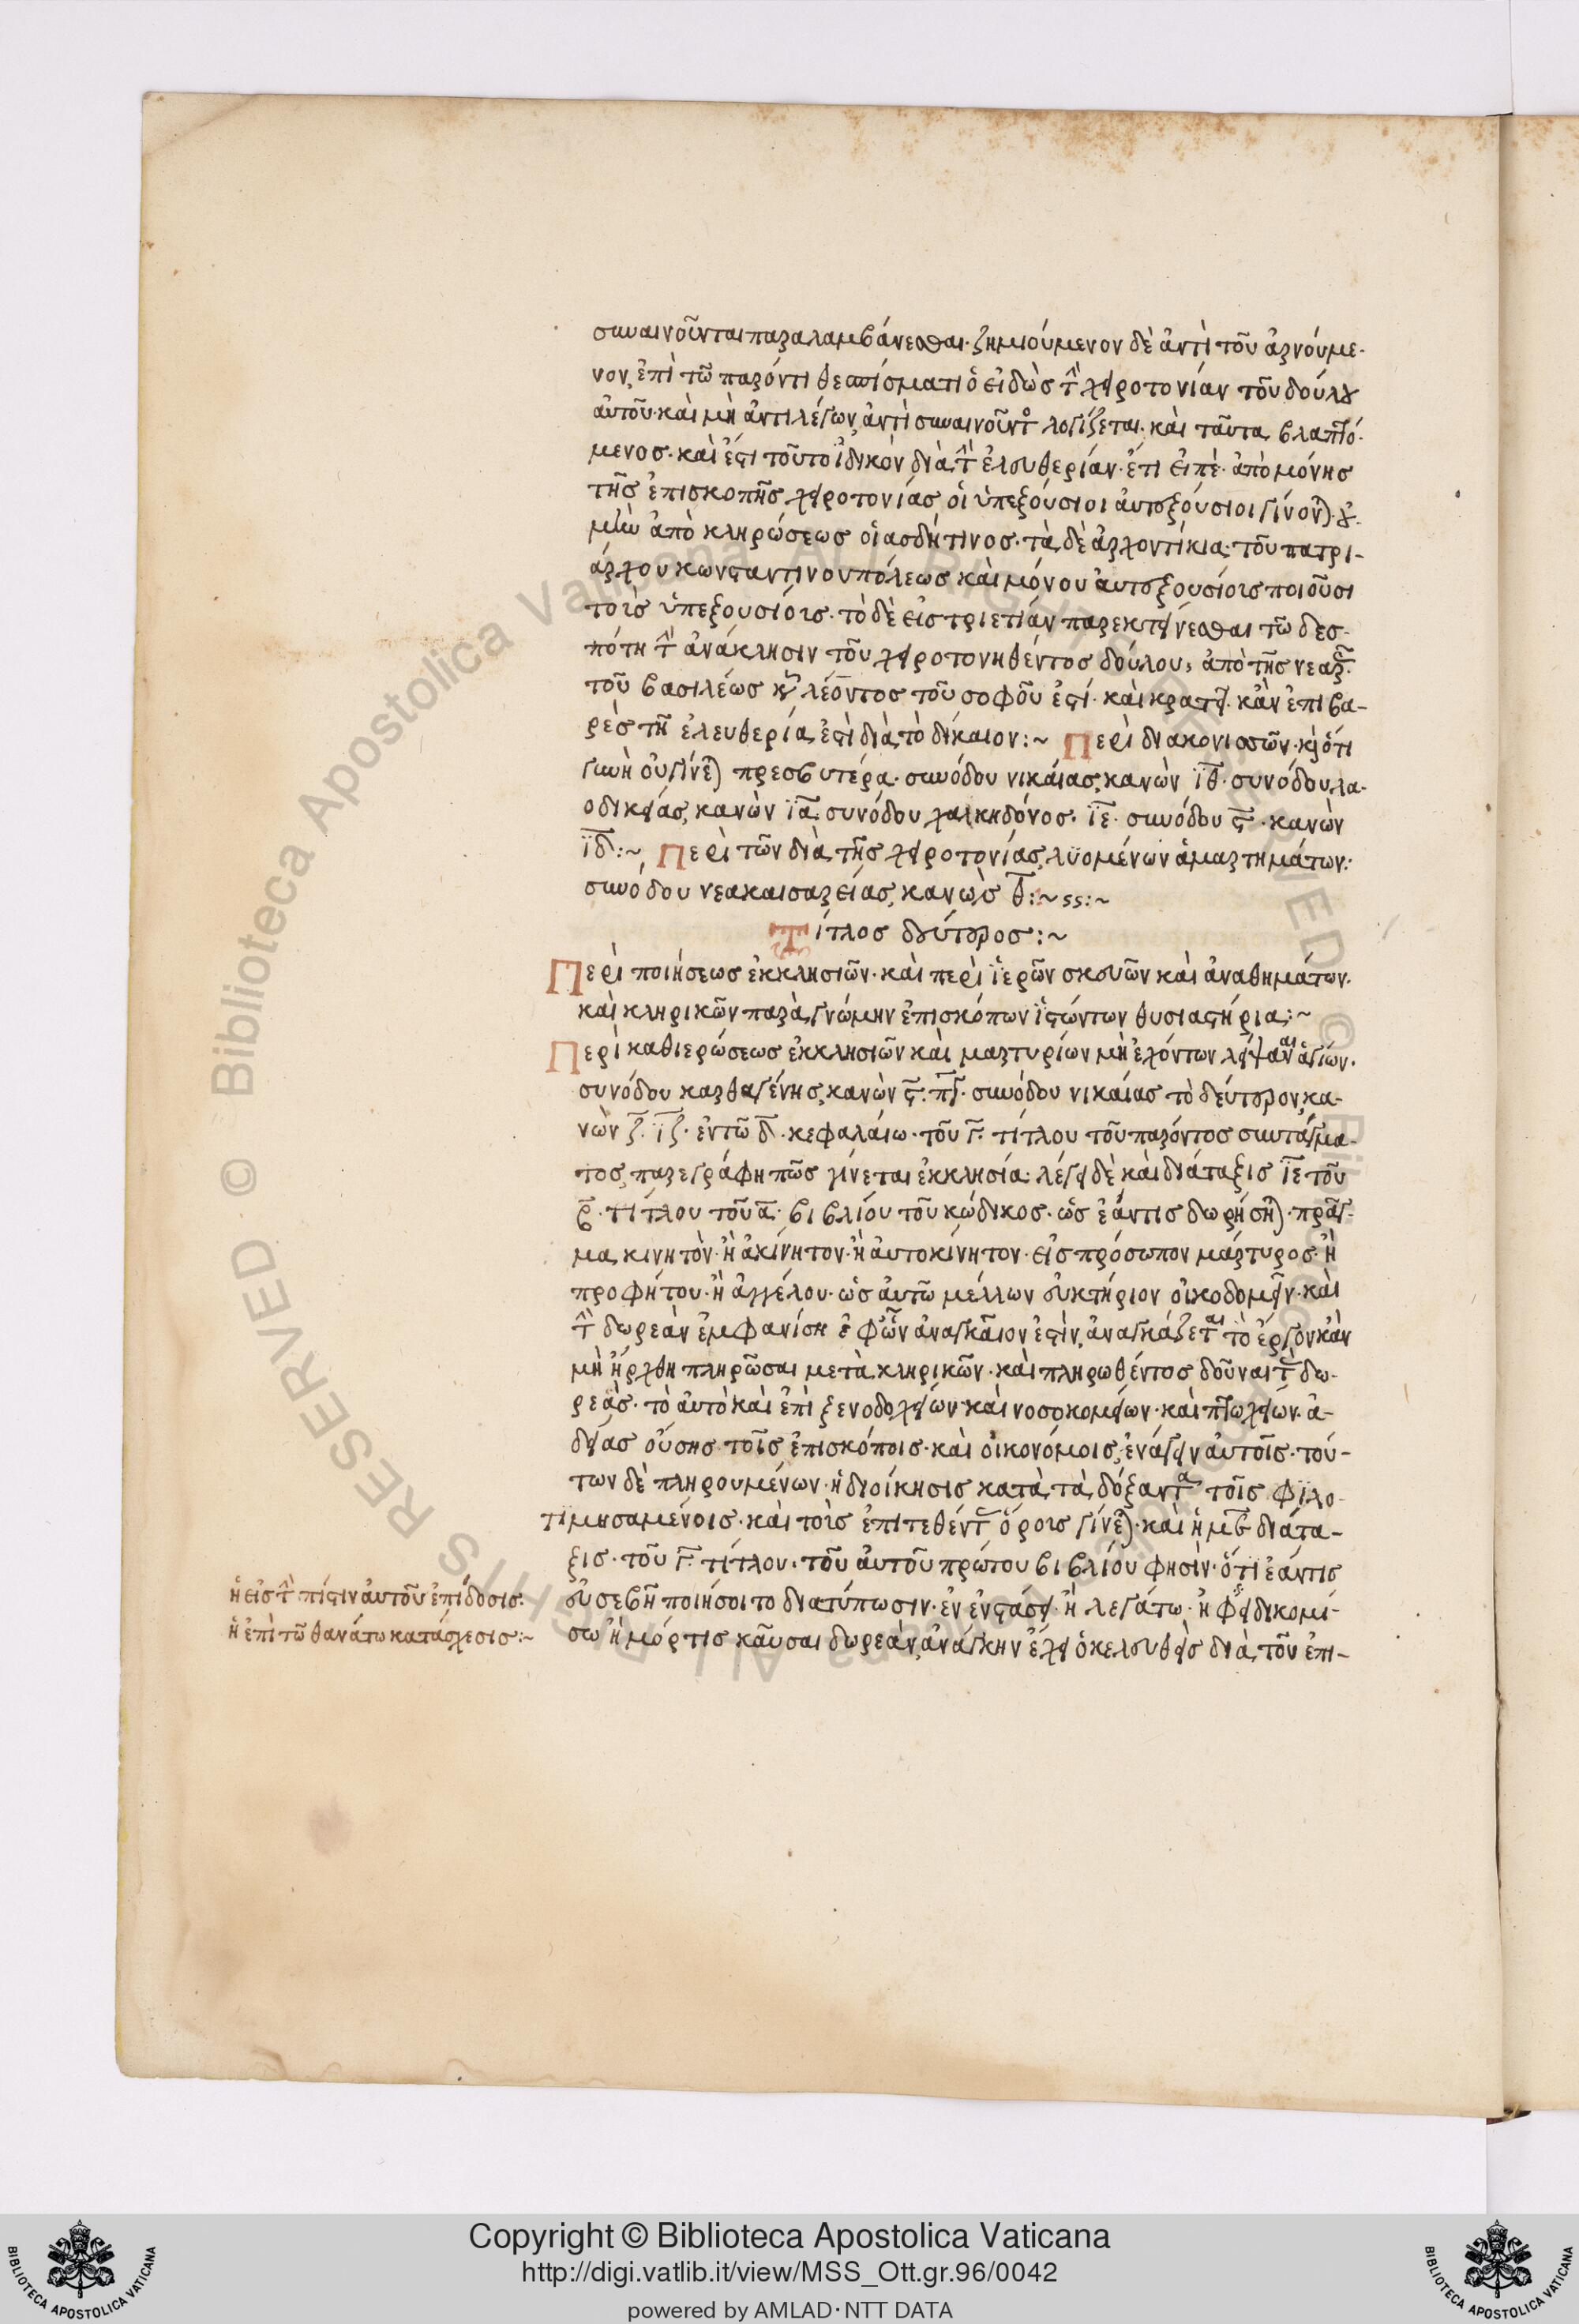 συναινοῦνται παραλαμβάνεσθαι· ζημιούμενον δὲ ἀντὶ τοῦ ἀρνούμε-
νον, ἐπὶ τῶ παρόντι θεσπίσματι ὁ εἰδὼς τὴν χειροτονίαν τοῦ δούλου
αὐτοῦ· καὶ μὴ ἀντιλέγων, ἀντὶ συναινοῦντος λογίζεται· καὶ ταῦτα βλαπτό-
μενος· καὶ ἔστι τοῦτο ἰδικὸν διὰ τὴν ἐλευθερίαν· ἔτι εἰπὲ· ἀπὸ μόνης
τῆς ἐπισκοπῆς χειροτονίας οἱ ὑπεξούσιοι αὐτεξούσιοι γίνονται· οὐ
μὴν ἀπὸ κληρώσεως οἱασδήτινος· τὰ δὲ ἀρχοντίκια· τοῦ πατρι-
άρχου κωνσταντινουπόλεως καὶ μόνου αὐτεξουσίοις ποιοῦσι
τοὶς ὑπεξουσίοις· τὸ δὲ εἰς τριετίαν παρεκτείνεσθαι τῶ δεσ-
πότη τὴν ἀνάκλησιν τοῦ χειροτονηθέντος δούλου, ἀπὸ τῆς νεαρᾶς
τοῦ βασιλέως κυροῦ λέοντος τοῦ σοφοῦ ἐστί· καὶ κρατεῖ· κἂν ἐπιβα-
ρὲς τῆ ἐλευθερία ἐστὶ διὰ τὸ δίκαιον:~ Περὶ διακονισσῶν· καὶ ὅτι
γυνὴ οὐ γίνεται πρεσβυτέρα· συνόδου νικαίας, κανὼν ϊθ· συνόδου λα-
οδικείας, κανὼν ϊα· συνόδου χαλκηδόνος· ϊε· συνόδου ς· κανὼν
ϊδ:~ Περὶ τῶν διὰ τῆς χειροτονίας λυομένων ἁμαρτημάτων:
συνόδου νεακαισαρείας, κανὼς θ:~
Τίτλος δεύτερος:~
Περὶ ποιήσεως ἐκκλησιῶν· καὶ περὶ ἱερῶν σκευῶν καὶ ἀναθημάτων·
καὶ κληρικῶν παρὰ γνώμην ἐπισκόπων ἱστώντων θυσιαστήρια:~
Περὶ καθιερώσεως ἐκκλησιῶν καὶ μαρτυρίων μὴ ἐχόντων λείψανα ἁγίων·
συνόδου καρθαγένης, κανὼν ς· πγ· συνόδου νικαίας τὸ δεύτερον, κα-
νὼν ζ· ϊζ· ἐν τῶ δ· κεφαλαίω· τοῦ γ· τίτλου τοῦ παρόντος συντάγμα-
τος, παρεγράφη πῶς γίνεται ἐκκλησία· λέγει δὲ καὶ διάταξις ϊε τοῦ
β· τίτλου τοῦ α· βιβλίου τοῦ κώδικος· ὡς ἐάν τις δωρήσηται· πρᾶγ-
μα κινητὸν· ἢ ἀκίνητον· ἢ αὐτοκίνητον· εἰς πρόσωπον μάρτυρος· ἢ
προφήτου· ἢ ἀγγέλου· ὡς αὐτῶ μέλλων εὐκτήριον οἰκοδομεῖν· καὶ
τὴν δωρεὰν ἐμφανίση ἐφ' ὧν ἀναγκαῖον ἐστὶν, ἀναγκάζεται τὸ ἔργον κἂν
μὴ ἤρχθη πληρῶσαι μετὰ κληρικῶν· καὶ πληρωθέντος δοῦναι τὰς δω-
ρεὰς· τὸ αὐτὸ καὶ ἐπὶ ξενοδοχείων· καὶ νοσοκομείων· καὶ πτωχείων· ἀ-
δείας οὔσης τοῖς ἐπισκόποις· καὶ οἰκονόμοις, ἐνάγειν αὐτοῖς· τού-
των δὲ πληρουμένων· ἡ διοίκησις κατὰ τὰ δόξαντα τοῖς φιλο-
τιμησαμένοις· καὶ τοὶς ἐπιτεθέντας ὅροις γίνεται· καὶ ἡ μβ διάτα-
ξις· τοῦ γ· τίτλου· τοῦ αὐτοῦ πρώτου βιβλίου φησὶν· ὅτι ἐάν τις
εὐσεβῆ ποιήσοιτο διατύπωσιν· ἐν ἐνστάσει· ἢ λεγάτω· ἢ φειδικομί-
σω ἢ μόρτις καῦσαι δωρεὰν, ἀνάγκην ἔχει ὁ κελευθεὶς διὰ τὸν ἐπι-
ἡ εἰς τὴν πίστιν αὐτοῦ ἐπίδοσις:
ἢ ἐπὶ τῶ θανάτω κατάσχεσις:~
Copyright © Biblioteca Apostolica Vaticana
http://digi.vatlib.it/view/MSS_Ott.gr.96/0042
powered by AMLAD·NTT DATA
BIBLIOTECA APOSTOLICA VATICANA
BIBLIOTECA APOSTOLICA VATICANA